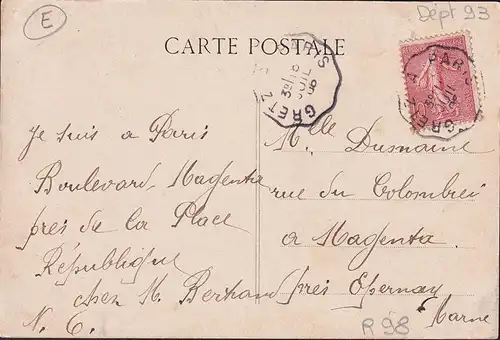 E
Dépt 93
CARTE POSTALE
PARIS
3º/18
JUIL
06
GRETZ
PARIS
3º
JUIL
GRETZ A
Je suis a Paris
Boulevard Magenta
près de la Place
République
chez M. Bertrand
N. C.
Mlle Dumaine
rue du Colombier
a Magenta
près Epernay
Marne
R 98